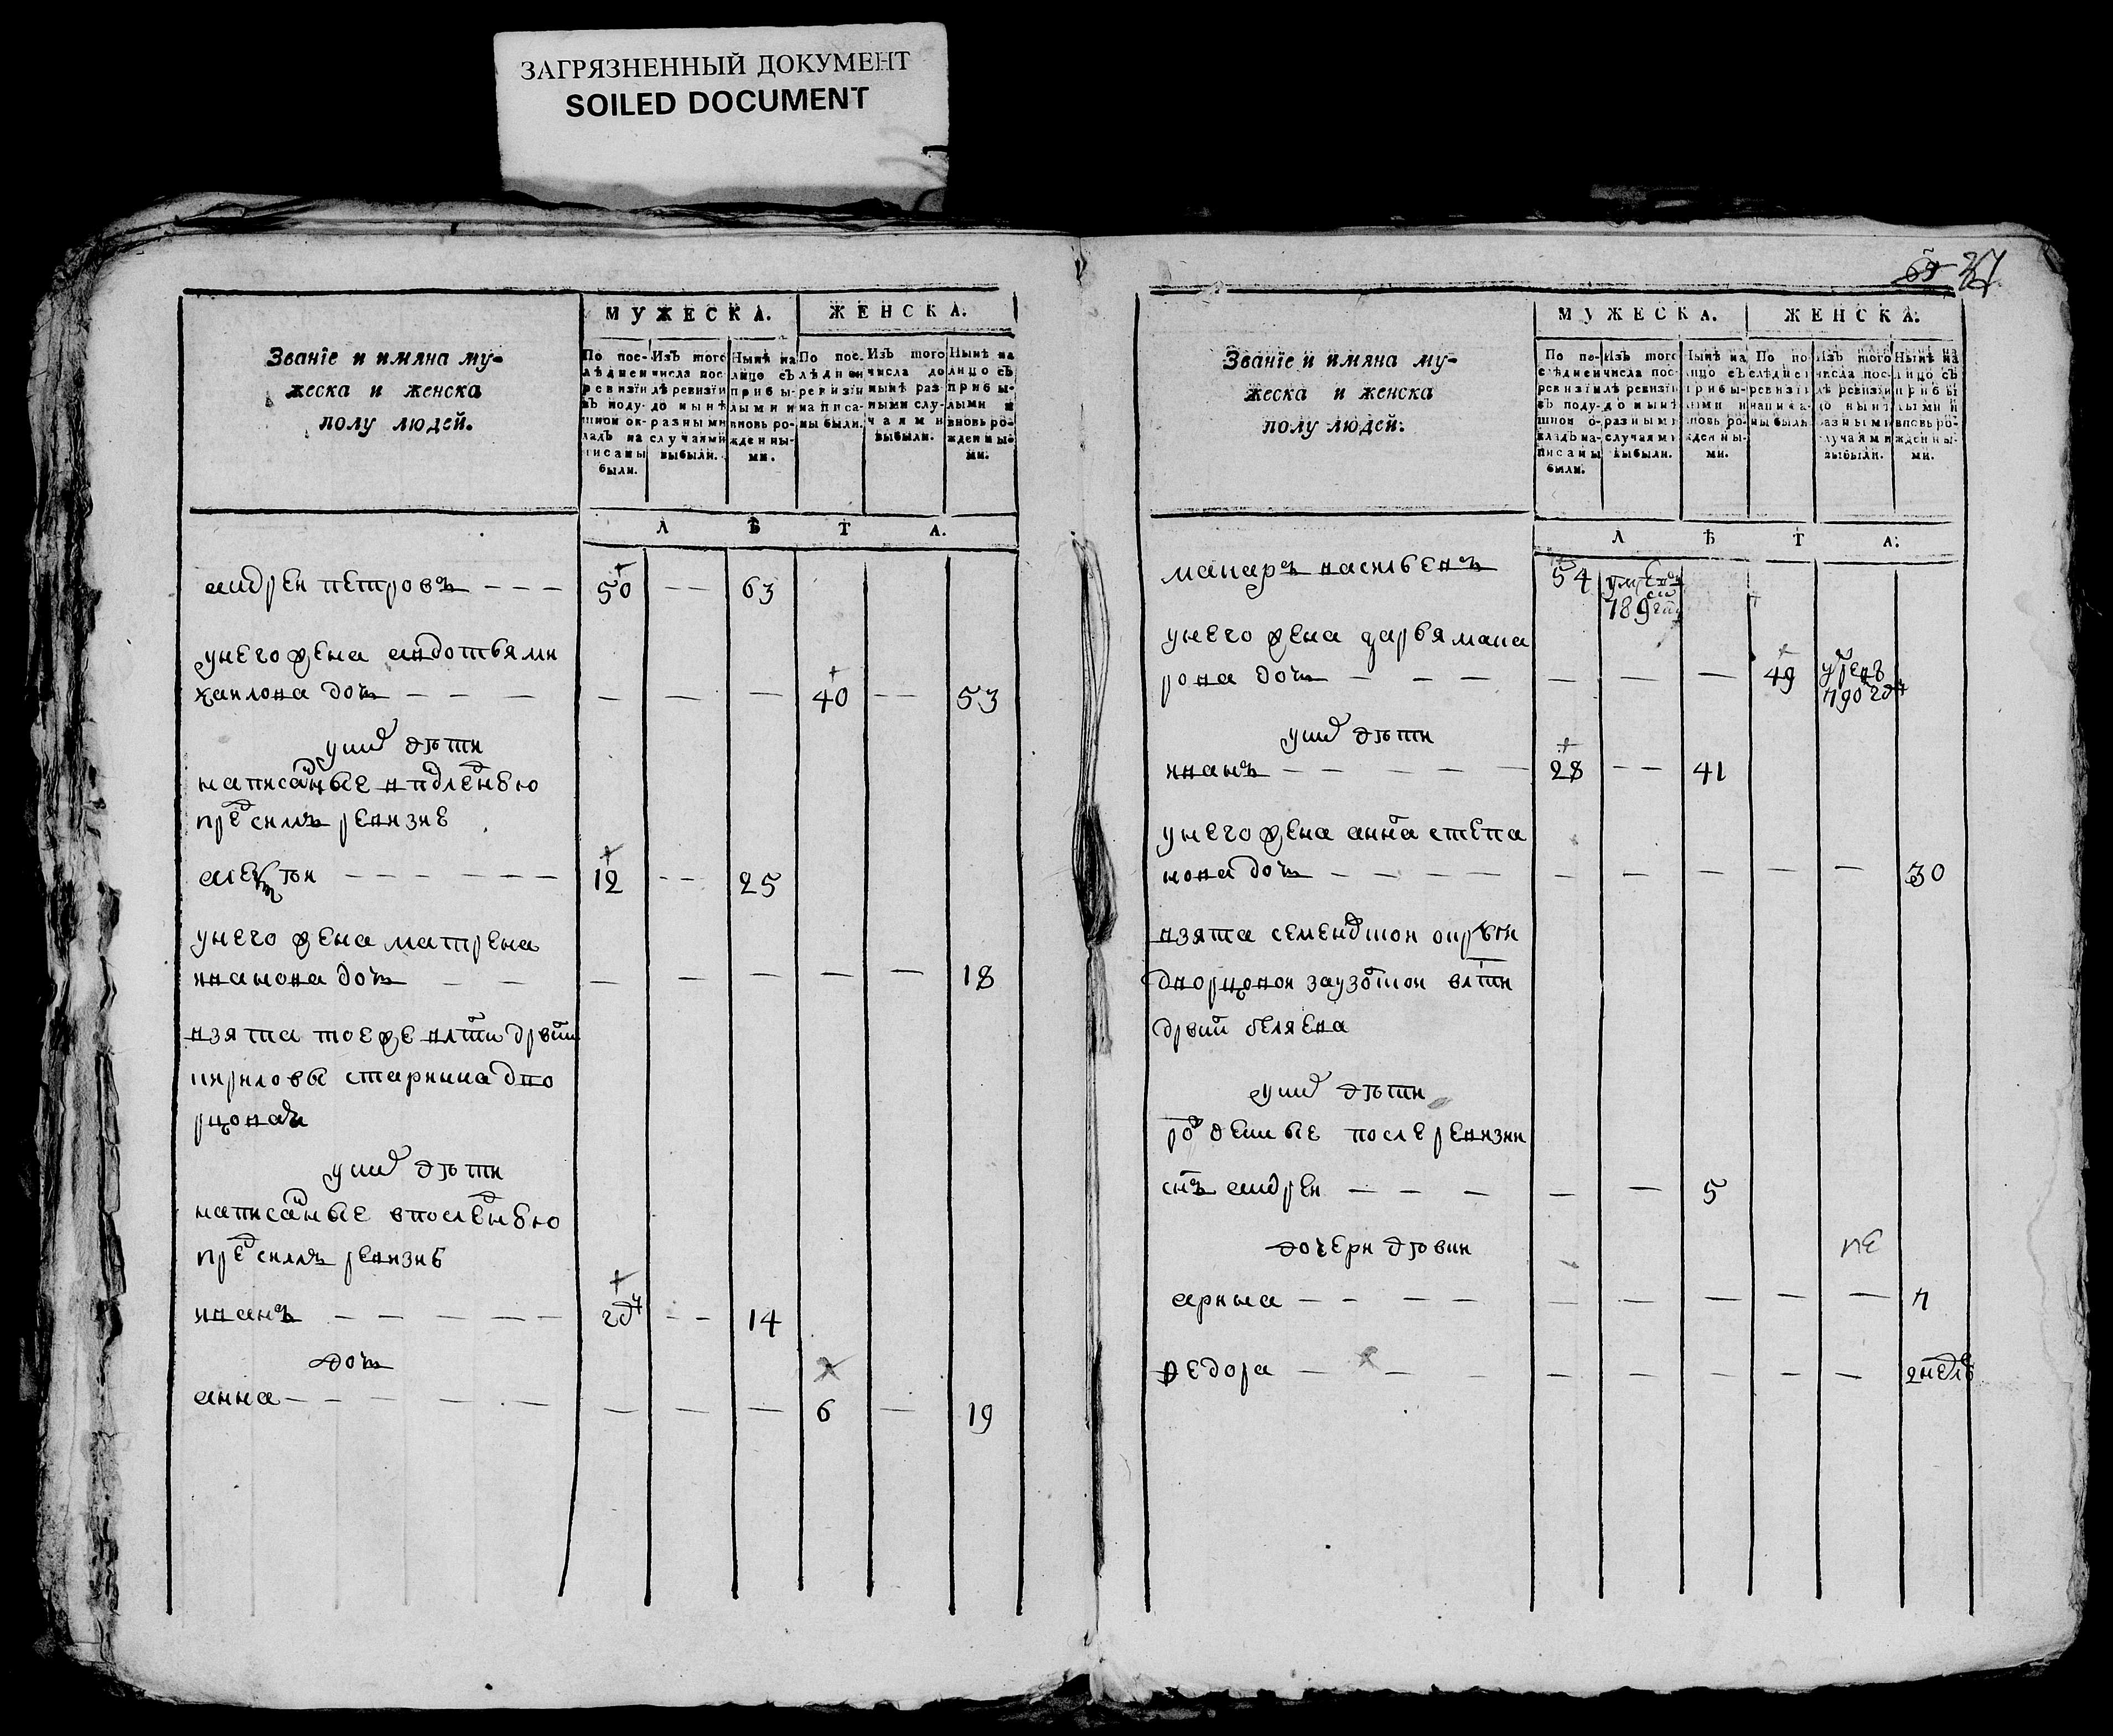 ЗАГРЯЗНЕННЫЙ ДОКУМЕНТ
SOILED DOCUMENT
Званїе и имяна му-
жеска и женска
полу людей.
МУЖЕСКА.
ЖЕНСКА.
По пос-
лѣдней
ревизїи
въ поду-
шной ок-
ладъ на
писаны
были.
Изъ того
числа пос-
лѣ ревизїи
до нынѣ
разными
случаями
выбыли.
Нынѣ на
лицо съ
прибы-
лыми и
вновь ро-
жденны-
ми.
По пос-
лѣдней
ревизїи
написа-
ны были.
Изъ того
числа до
нынѣ раз-
ными слу-
чаями
выбыли.
Нынѣ на
лицо съ
прибы-
лыми и
вновь ро-
жденны-
ми.
ЛѢТА.
андреи петровъ - - - 50 - - 63
унего жена авдотья ми
хаилова доч - - - - - - 40 - - 53
уних дѣти
написаные в последнюю
пред сим ревизие
алексѣи - - - - - - 12 - - 25
унего жена матрена
иванова доч - - - - - - - 18
взята тоеже влсти дрвни
кириловы старика дво
рцоваго
уних дѣти
написаные впоследнюю
пред сим ревизие
иванъ - - - - - 2д - - 14
доч
анна - - - - - - - - 6 - 19
37
Званїе и имяна му-
жеска и женска
полу людей.
МУЖЕСКА.
ЖЕНСКА.
По по-
слѣдней
ревизїи
въ поду-
шной о-
кладъ на-
писаны
были.
Изъ того
числа пос-
лѣ ревизїи
до нынѣ
разными
случаями
выбыли.
Нынѣ на
лицо съ
прибы-
лыми и
вновь ро-
жденны-
ми.
По по-
слѣдней
ревизїи
написа-
ны были.
Изъ того
числа пос-
лѣ ревизїи
до нынѣ
разными
случаями
выбыли.
Нынѣ на
лицо съ
прибы-
лыми и
вновь ро-
жденны-
ми.
ЛѢТА.
макаръ васильевъ 54
789
унего жена дарья мака
рова доч - - - - - - 49 790
уних дѣти
иванъ - - - - - 28 - - 41
унего жена анна степа
нова доч - - - - - - - - - 30
взята семеновскои округи
дворцовои заузолскои влсти
дрвни беляева
уних дѣти
рожденные после ревизии
снъ андреи - - - - - 5
дочери дѣвки
арина - - - - - - - - - 7
федора - - - - - - - - 2 неделѣ